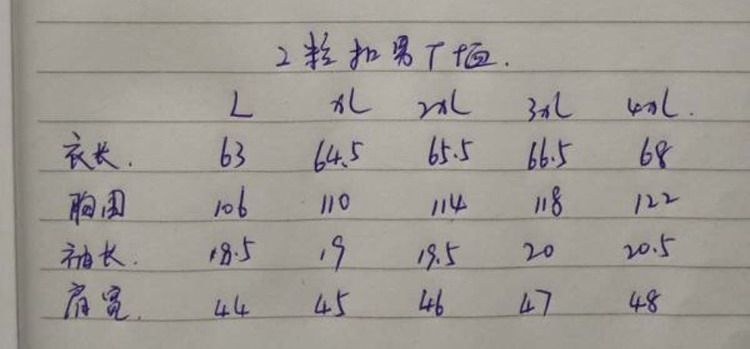 2粒扣男T恤.
L XL 2XL 3XL 4XL.
衣长. 63 64.5 65.5 66.5 68
胸围 106 110 114 118 122
袖长. 18.5 19 19.5 20 20.5
肩宽. 44 45 46 47 48